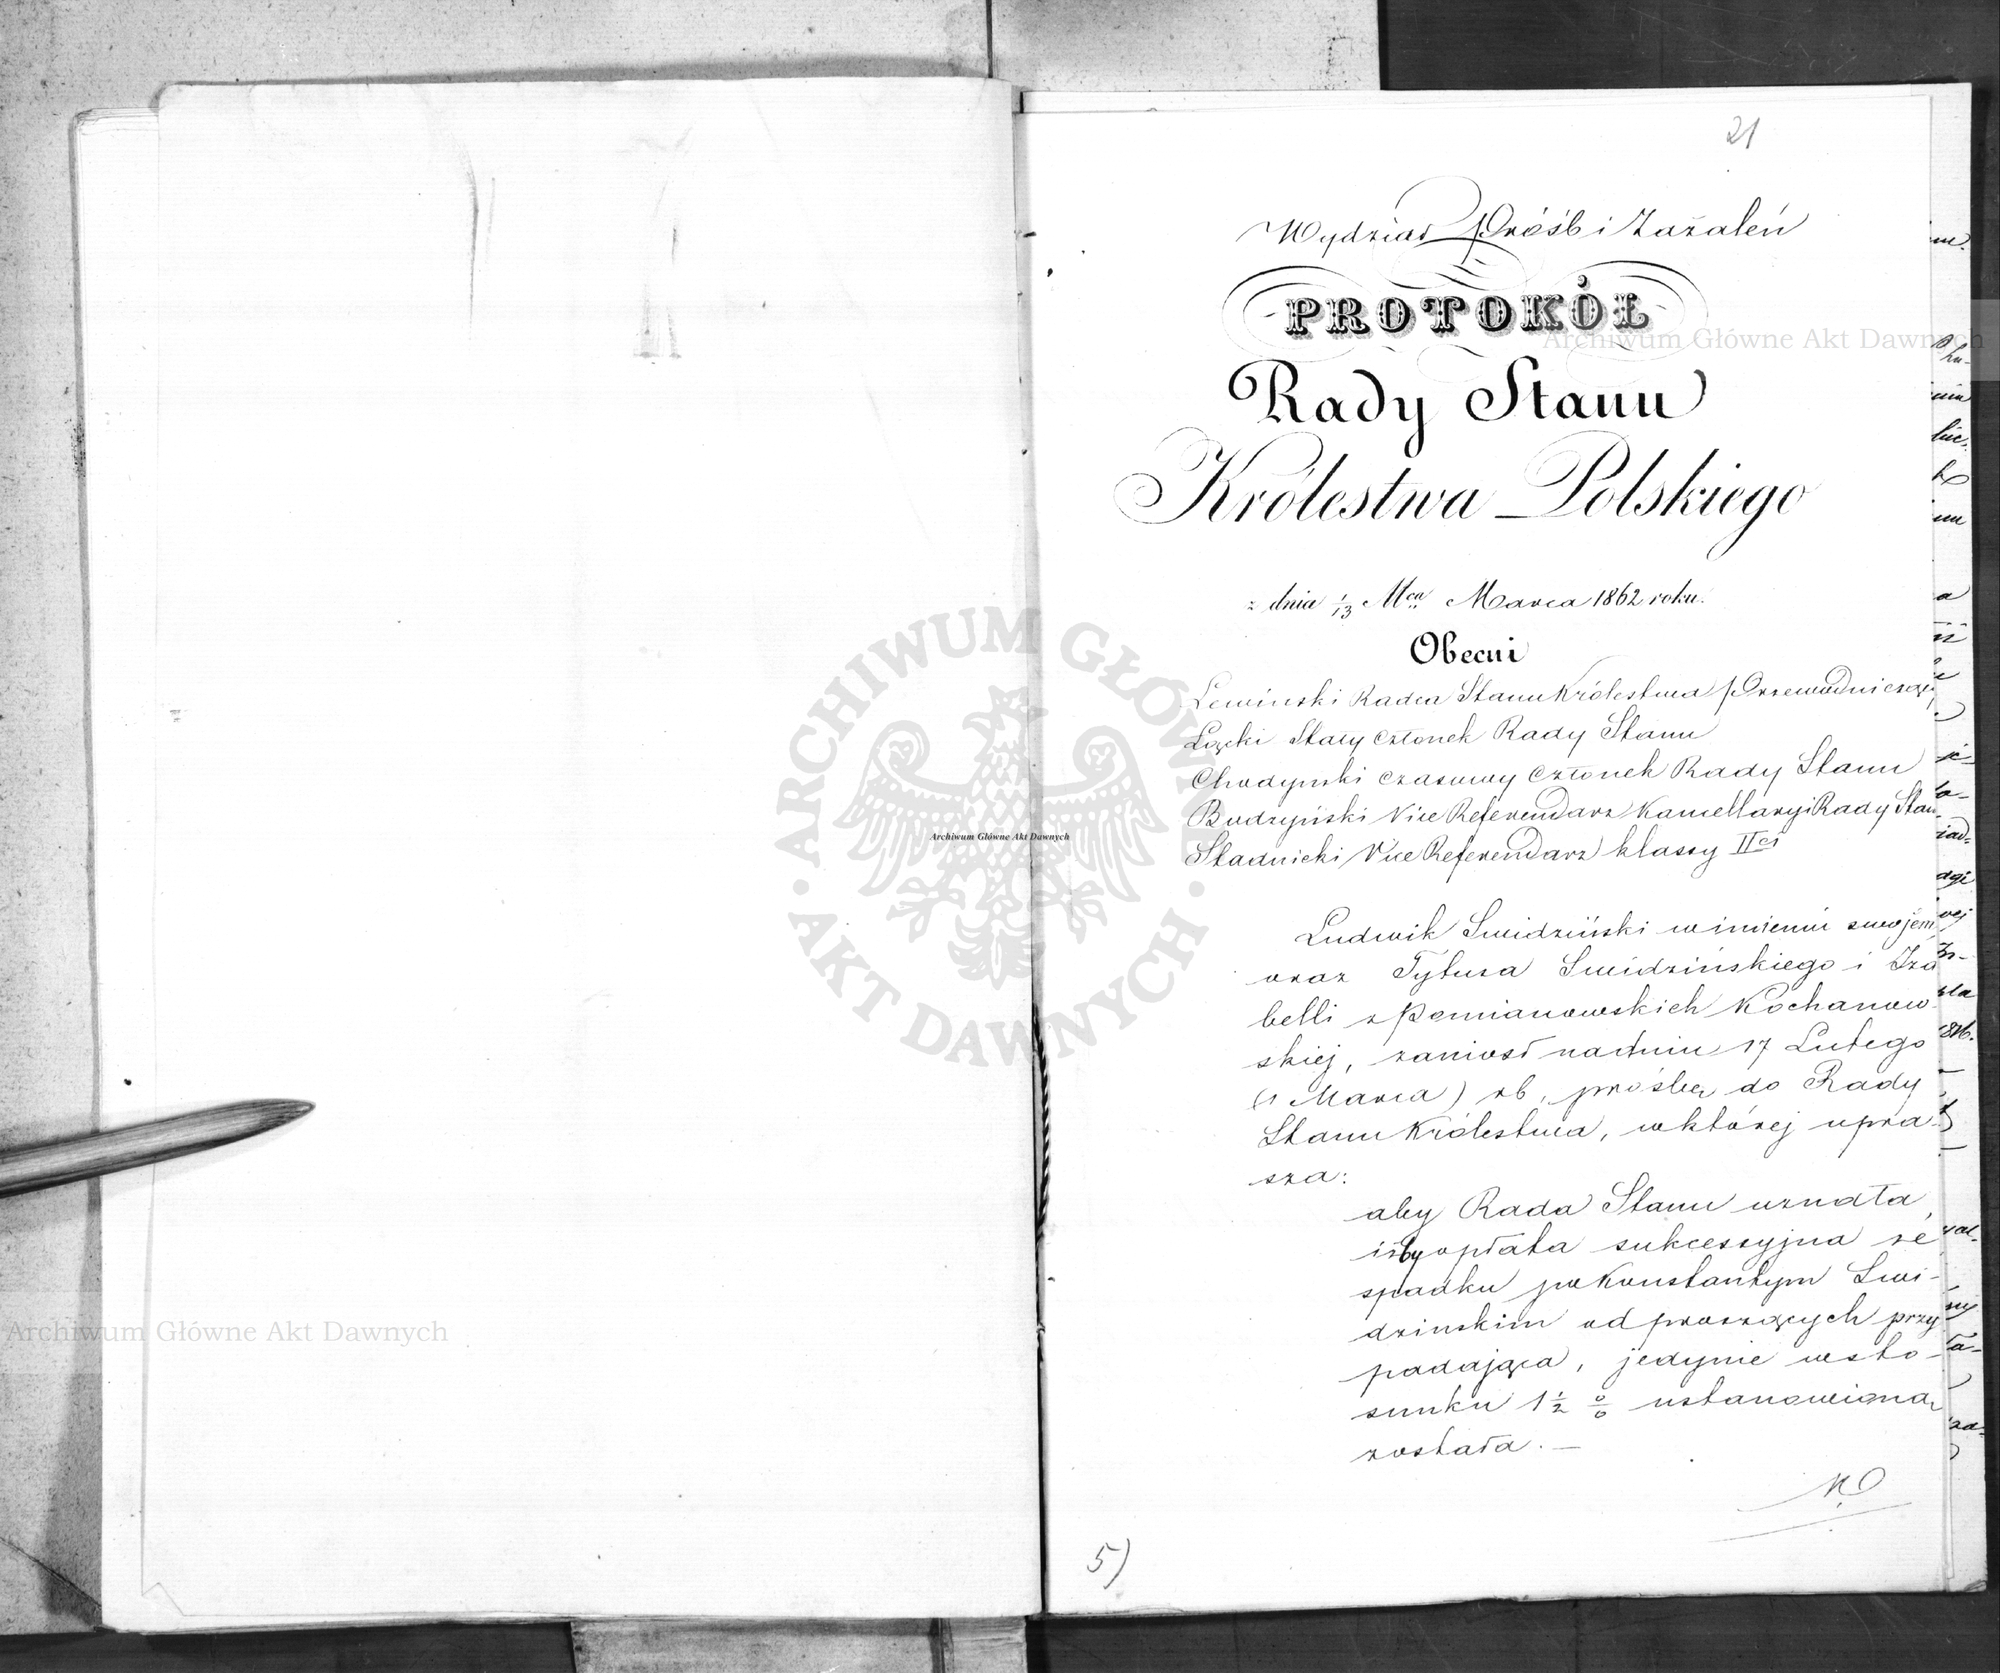 21
Wydział Próśb i Zażaleń
PROTOKÓŁ
Rady Stanu
Królestwa Polskiego
z dnia 1/13 Mca Marca 1862 roku.
Obecni
Lewiński Radca Stanu Królestwa Przewodniczący
Łącki Stały Członek Rady Stanu
Chodyński czasowy Członek Rady Stanu
Budzyński Vice Referendarz Kancellaryi Rady Stanu
Stadnicki Vice Referendarz klassy IIej
Ludwik Swidziński w imieniu swojem
oraz Tytusa Swidzińskiego i Iza
belli z Pomianowskich Kochanow-
skiej, zaniosł na dniu 17 Lutego
(1 Marca) rb, prośbę do Rady
Stanu Królestwa, w której upra-
sza:
aby Rada Stanu uznała
iżby opłata sukcessyjna ze
spadku po Konstantym Swi-
dzinskim od proszących przy
padająca, jedynie w sto-
sunku 1 1/2 % ustanowiona
została. —
5)
Archiwum Główne Akt Dawnych
Archiwum Główne Akt Dawnych
Archiwum Główne Akt Dawnych
ARCHIWUM GŁÓWNE AKT DAWNYCH